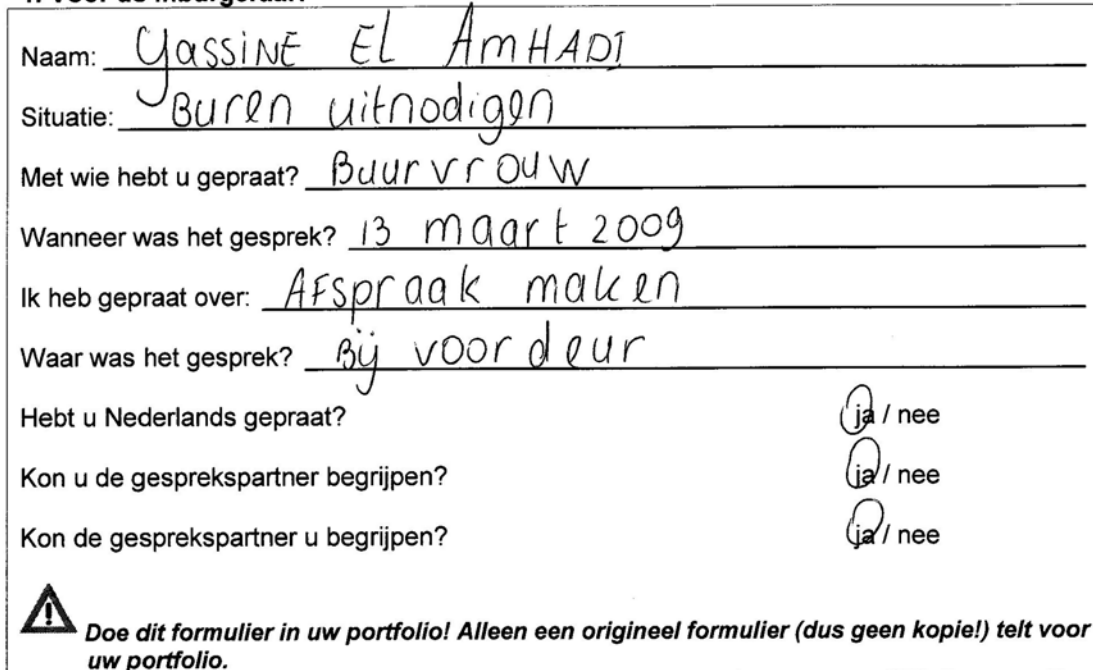 Naam: Yassine El Amhadi
Situatie: Buren uitnodigen
Met wie hebt u gepraat? Buurvrouw
Wanneer was het gesprek? 13 maart 2009
Ik heb gepraat over: Afspraak maken
Waar was het gesprek? Bij voordeur
Hebt u Nederlands gepraat? ja / nee
Kon u de gesprekspartner begrijpen? ja / nee
Kon de gesprekspartner u begrijpen? ja / nee
Doe dit formulier in uw portfolio! Alleen een origineel formulier (dus geen kopie!) telt voor
uw portfolio.